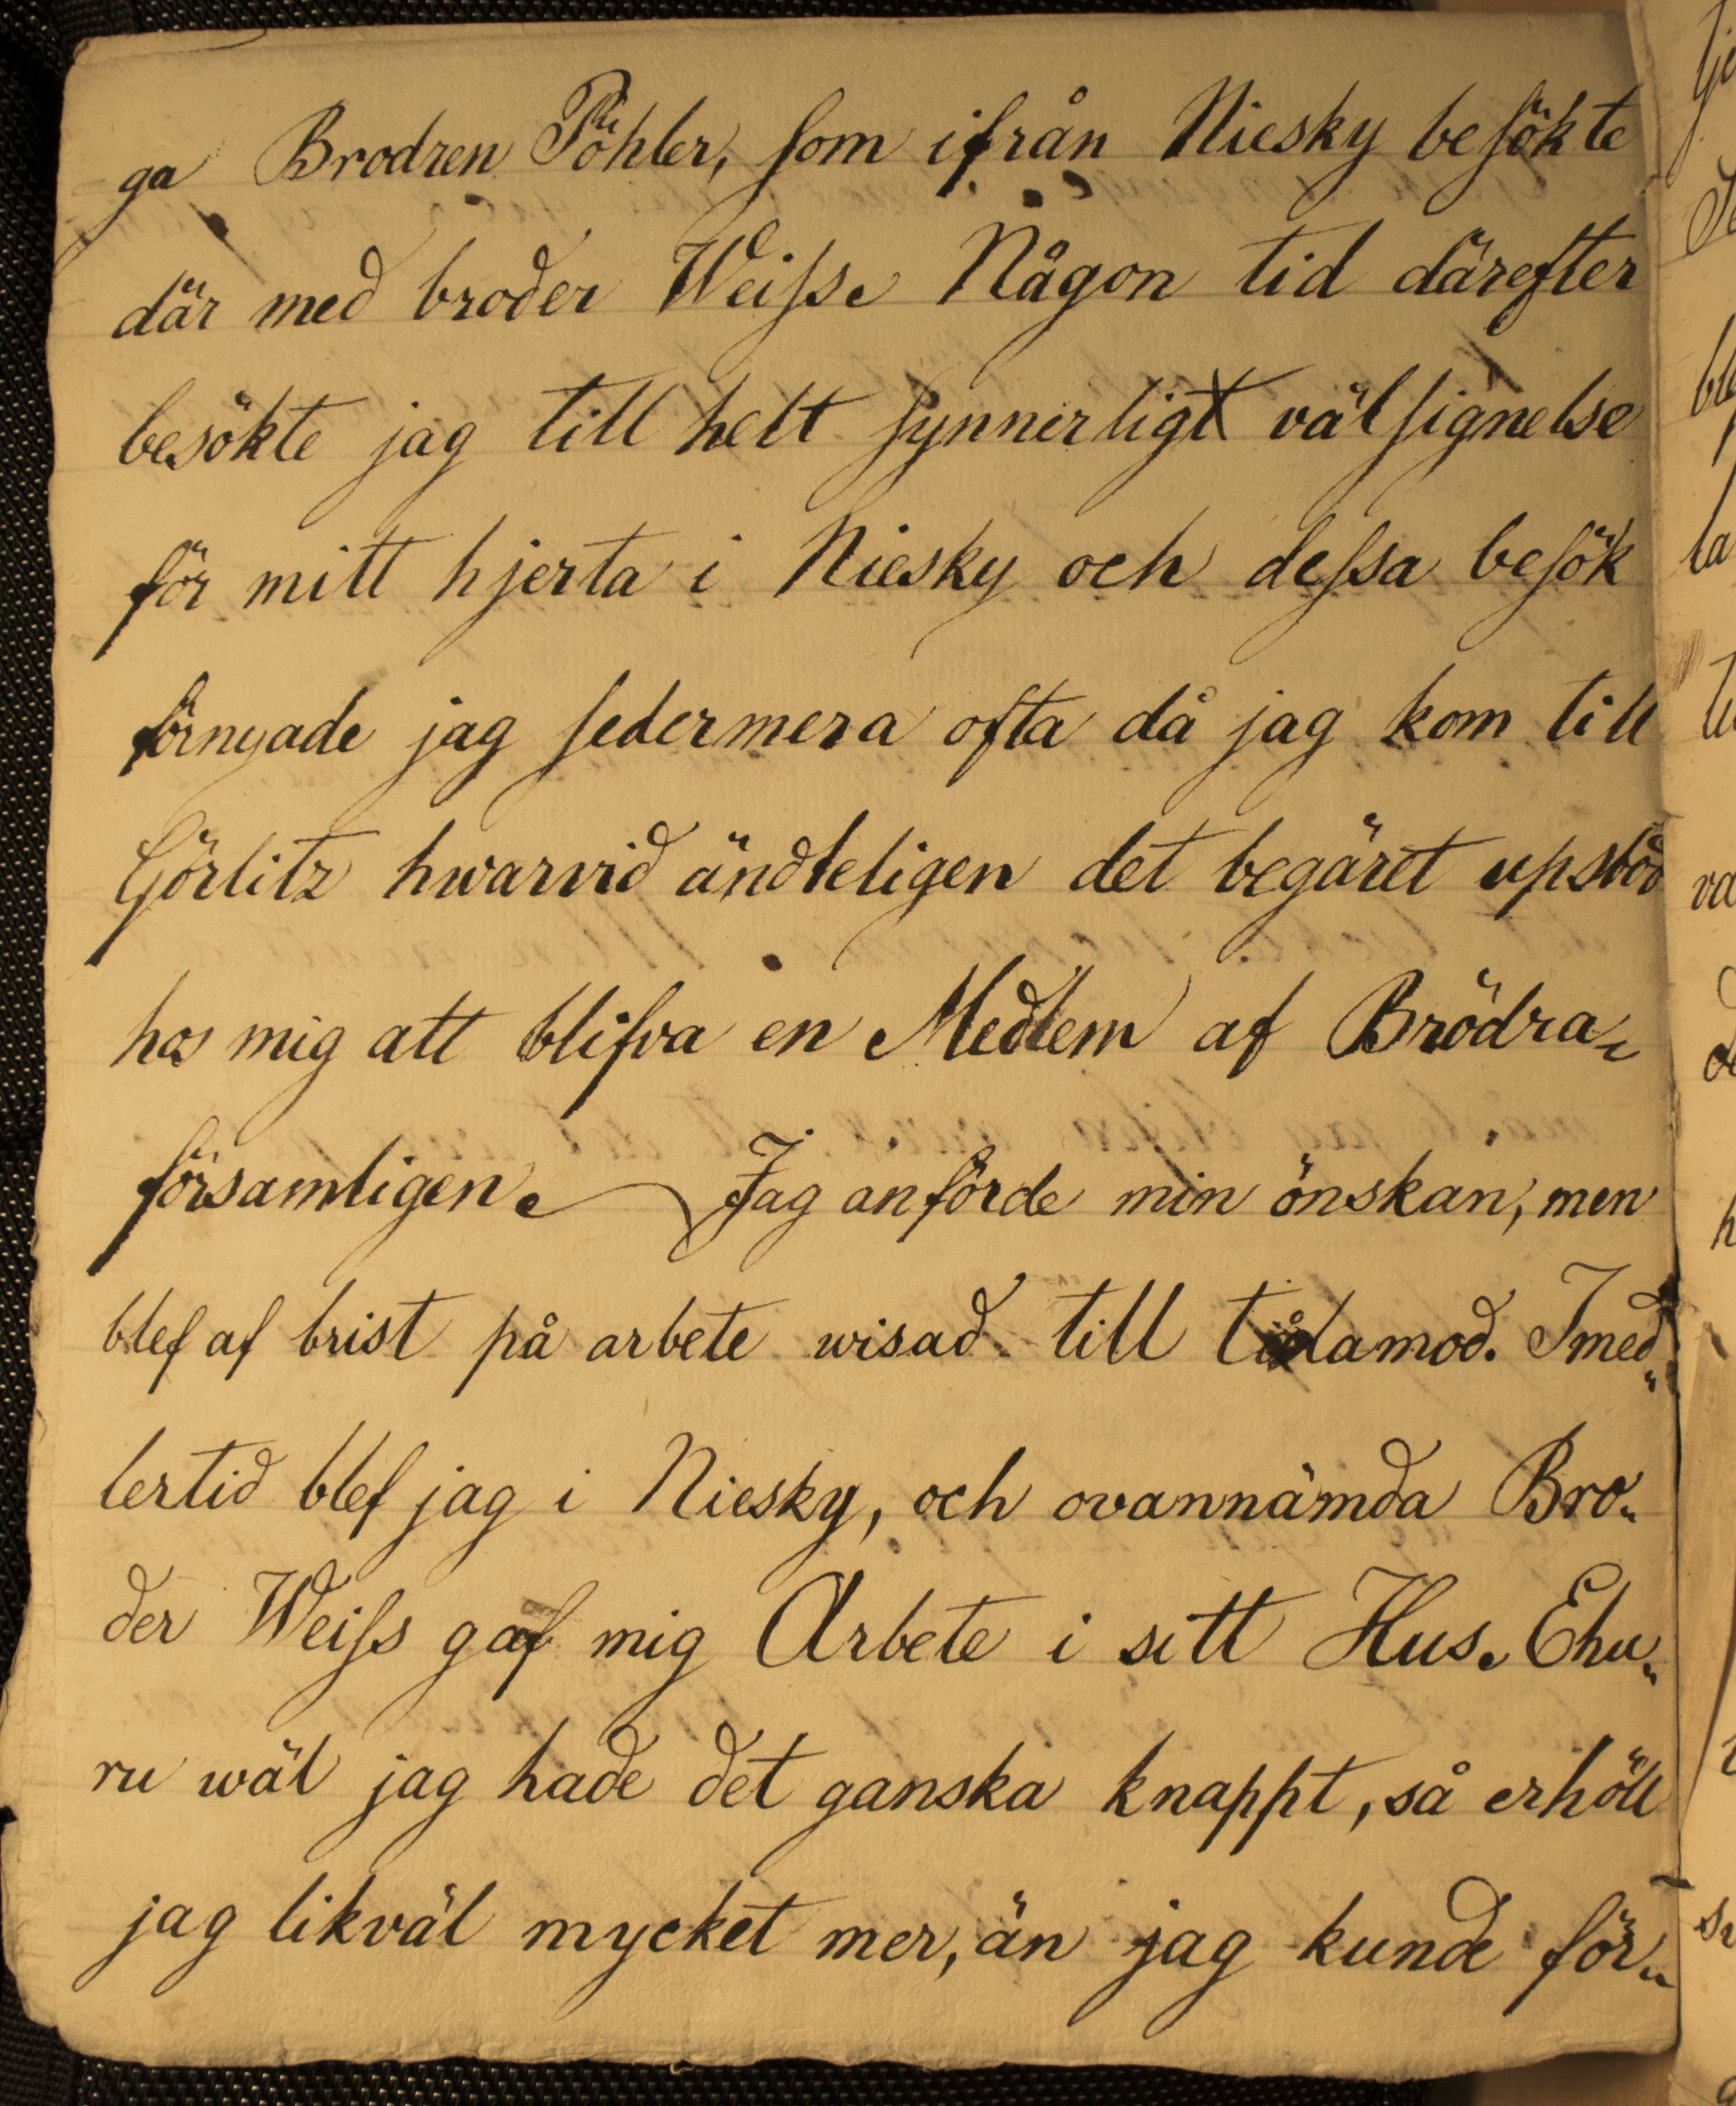 ga Brodren Pöhler, som ifrån Niesky besökte
där med broder Weisse Någon tid därefter
besökte jag till helt synnerligt välsignelse
för mitt hjerta i Niesky och dessa besök
förnyade jag sedermera ofta då jag kom till
Görlitz hwarvid ändteligen det begäret upstod
hos mig att blifva en Medlem af Brödra-
församligen. Jag anförde min önskan, men
blef af brist på arbete wisad till tålamod. Imed-
lertid blef jag i Niesky, och ovannämda Bro-
der Weiss gaf mig Arbete i sitt Hus. Ehu-
ru wäl jag hade det ganska knappt, så erhöll
jag likväl mycket mer, än jag kunde för-